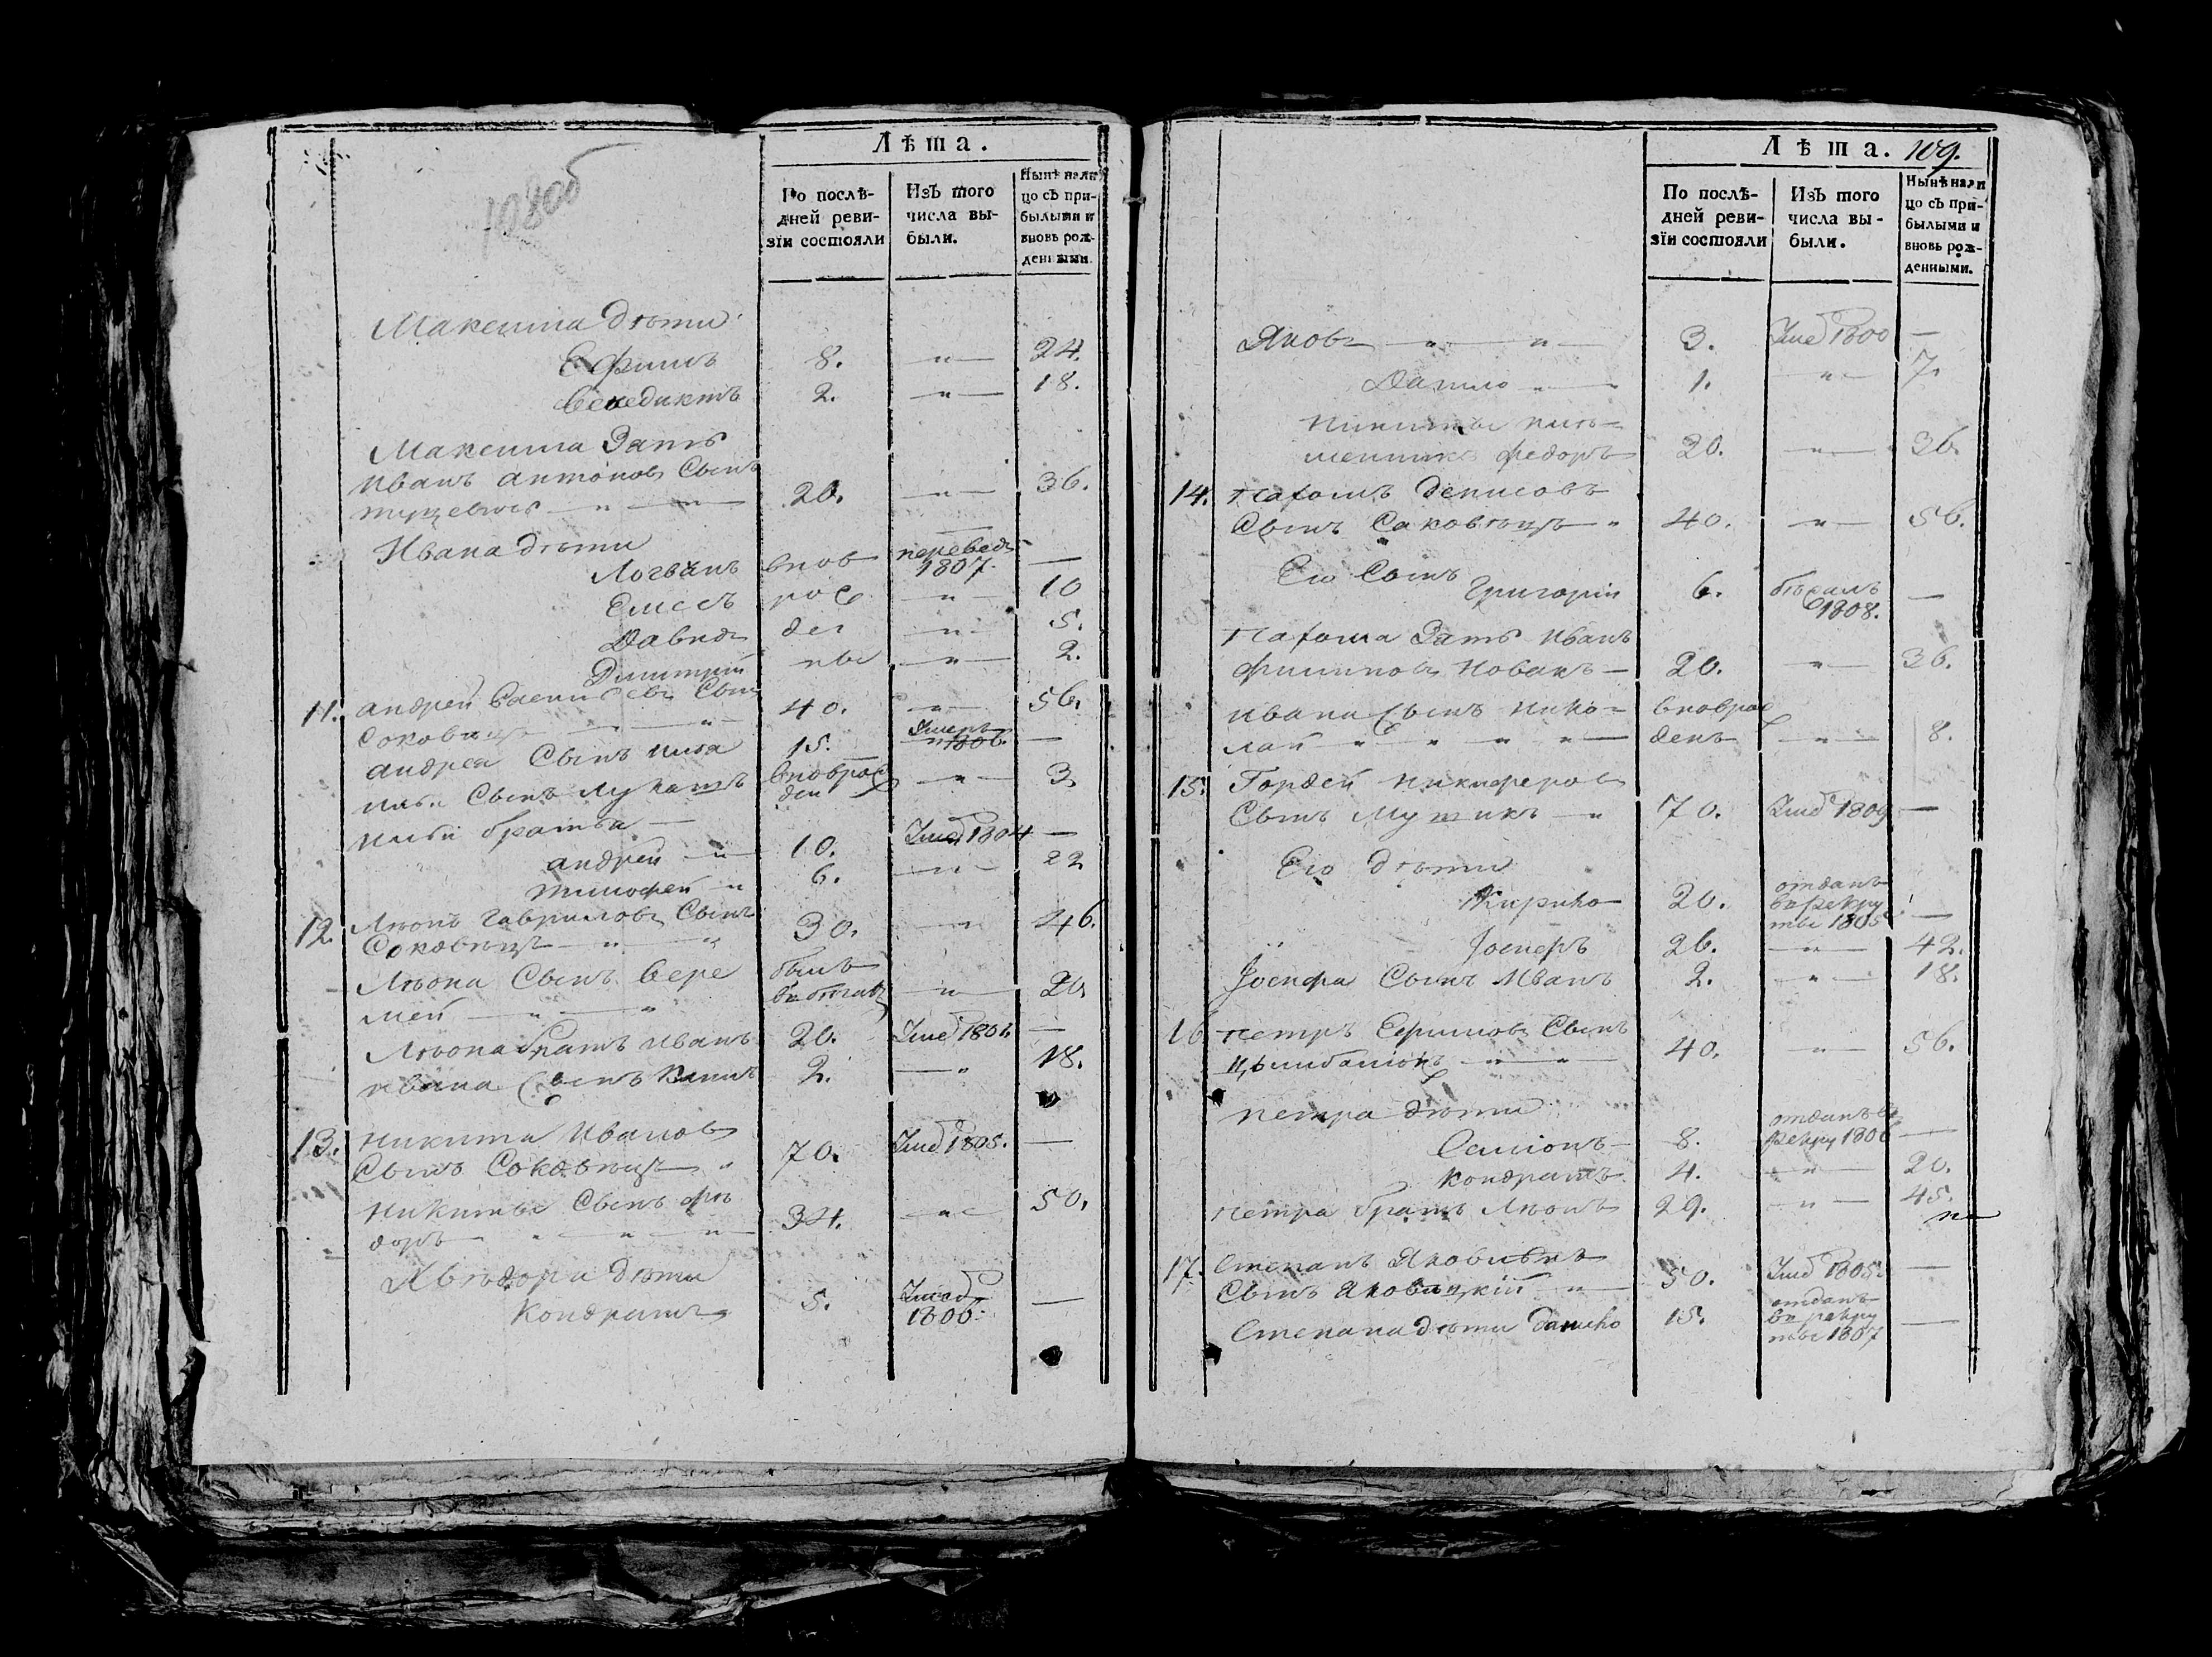 108об
Лѣта.
По послѣ-
дней реви-
зіи состояли
Изъ того
числа вы-
были.
Нынѣ нали
цо съ при-
былыми и
вновь рож-
денными.
Максима дѣти
Ефимъ 8. " 24.
Венедиктъ 2. " 18.
Максима Зять
Иванъ антоновъ Сынъ
20. " 36.
Ивана дѣти
Логвинъ внов переведъ 1807. —
Елисѣ рож " 10
Давидъ ден " 5.
Димитрій ны " 2.
11. андрей Сынъ
40. " 56.
андрея Сынъ илья 15. Умеръ 1806. —
ильи Сынъ Лукашъ вноврож ден " 3
ильи братья —
андрей " 10. Умеръ 1804 —
тимофей " 6. " 22
12. Лѣонъ Гавриловъ Сынъ
Соковецъ " " 30. " 46.
Лѣона Сынъ Вере былъ
мей " " в бѣгахъ " 20.
Лѣона братъ иванъ 20. —
ивана Сынъ 2. " 18.
13. Никита Ивановъ
Сынъ Соковецъ " 70. 1805. —
Никиты Сынъ
доръ " " " 34. " 50.
дѣти
Кондратъ 5. 1806. —
Лѣта. 109.
По послѣ-
дней реви-
зіи состояли
Изъ того
числа вы-
были.
Нынѣ нали
цо съ при-
былыми и
вновь рож-
денными.
Яковъ " " 3. 1800 —
Данило " 1. " 7.
Никиты пле-
менникъ федоръ 20. " 36.
14. Пахомъ денисовъ
Сынъ Саковецъ " 40. " 56.
Его Сынъ
Григорій 6. бѣжалъ 1808. —
Пахома Зять Иванъ
Филиповъ Новакъ — 20. " 36.
ивана Сынъ Нико- вноврож
лай " " " " денъ " 8.
15. Гордей Никифоровъ
Сынъ " 70. 1809 —
Его дѣти
Кирило 20. отданъ
в рекру
ты 1805 —
Іосифъ 26. " 42.
Іосифа Сынъ Иванъ 2. " 18.
16 петръ Ефимовъ Сынъ
" " 40. " 56.
петра дѣти
Саміонъ 8. отданъ в
рекру 1806 —
Кондратъ 4. " 20.
петра братъ Лѣонъ 29. " 45.
17. Степанъ
Сынъ Яковицкій " 50. 1805. —
Степана дѣти данило 15. отданъ
в рекру
ты 1807 —